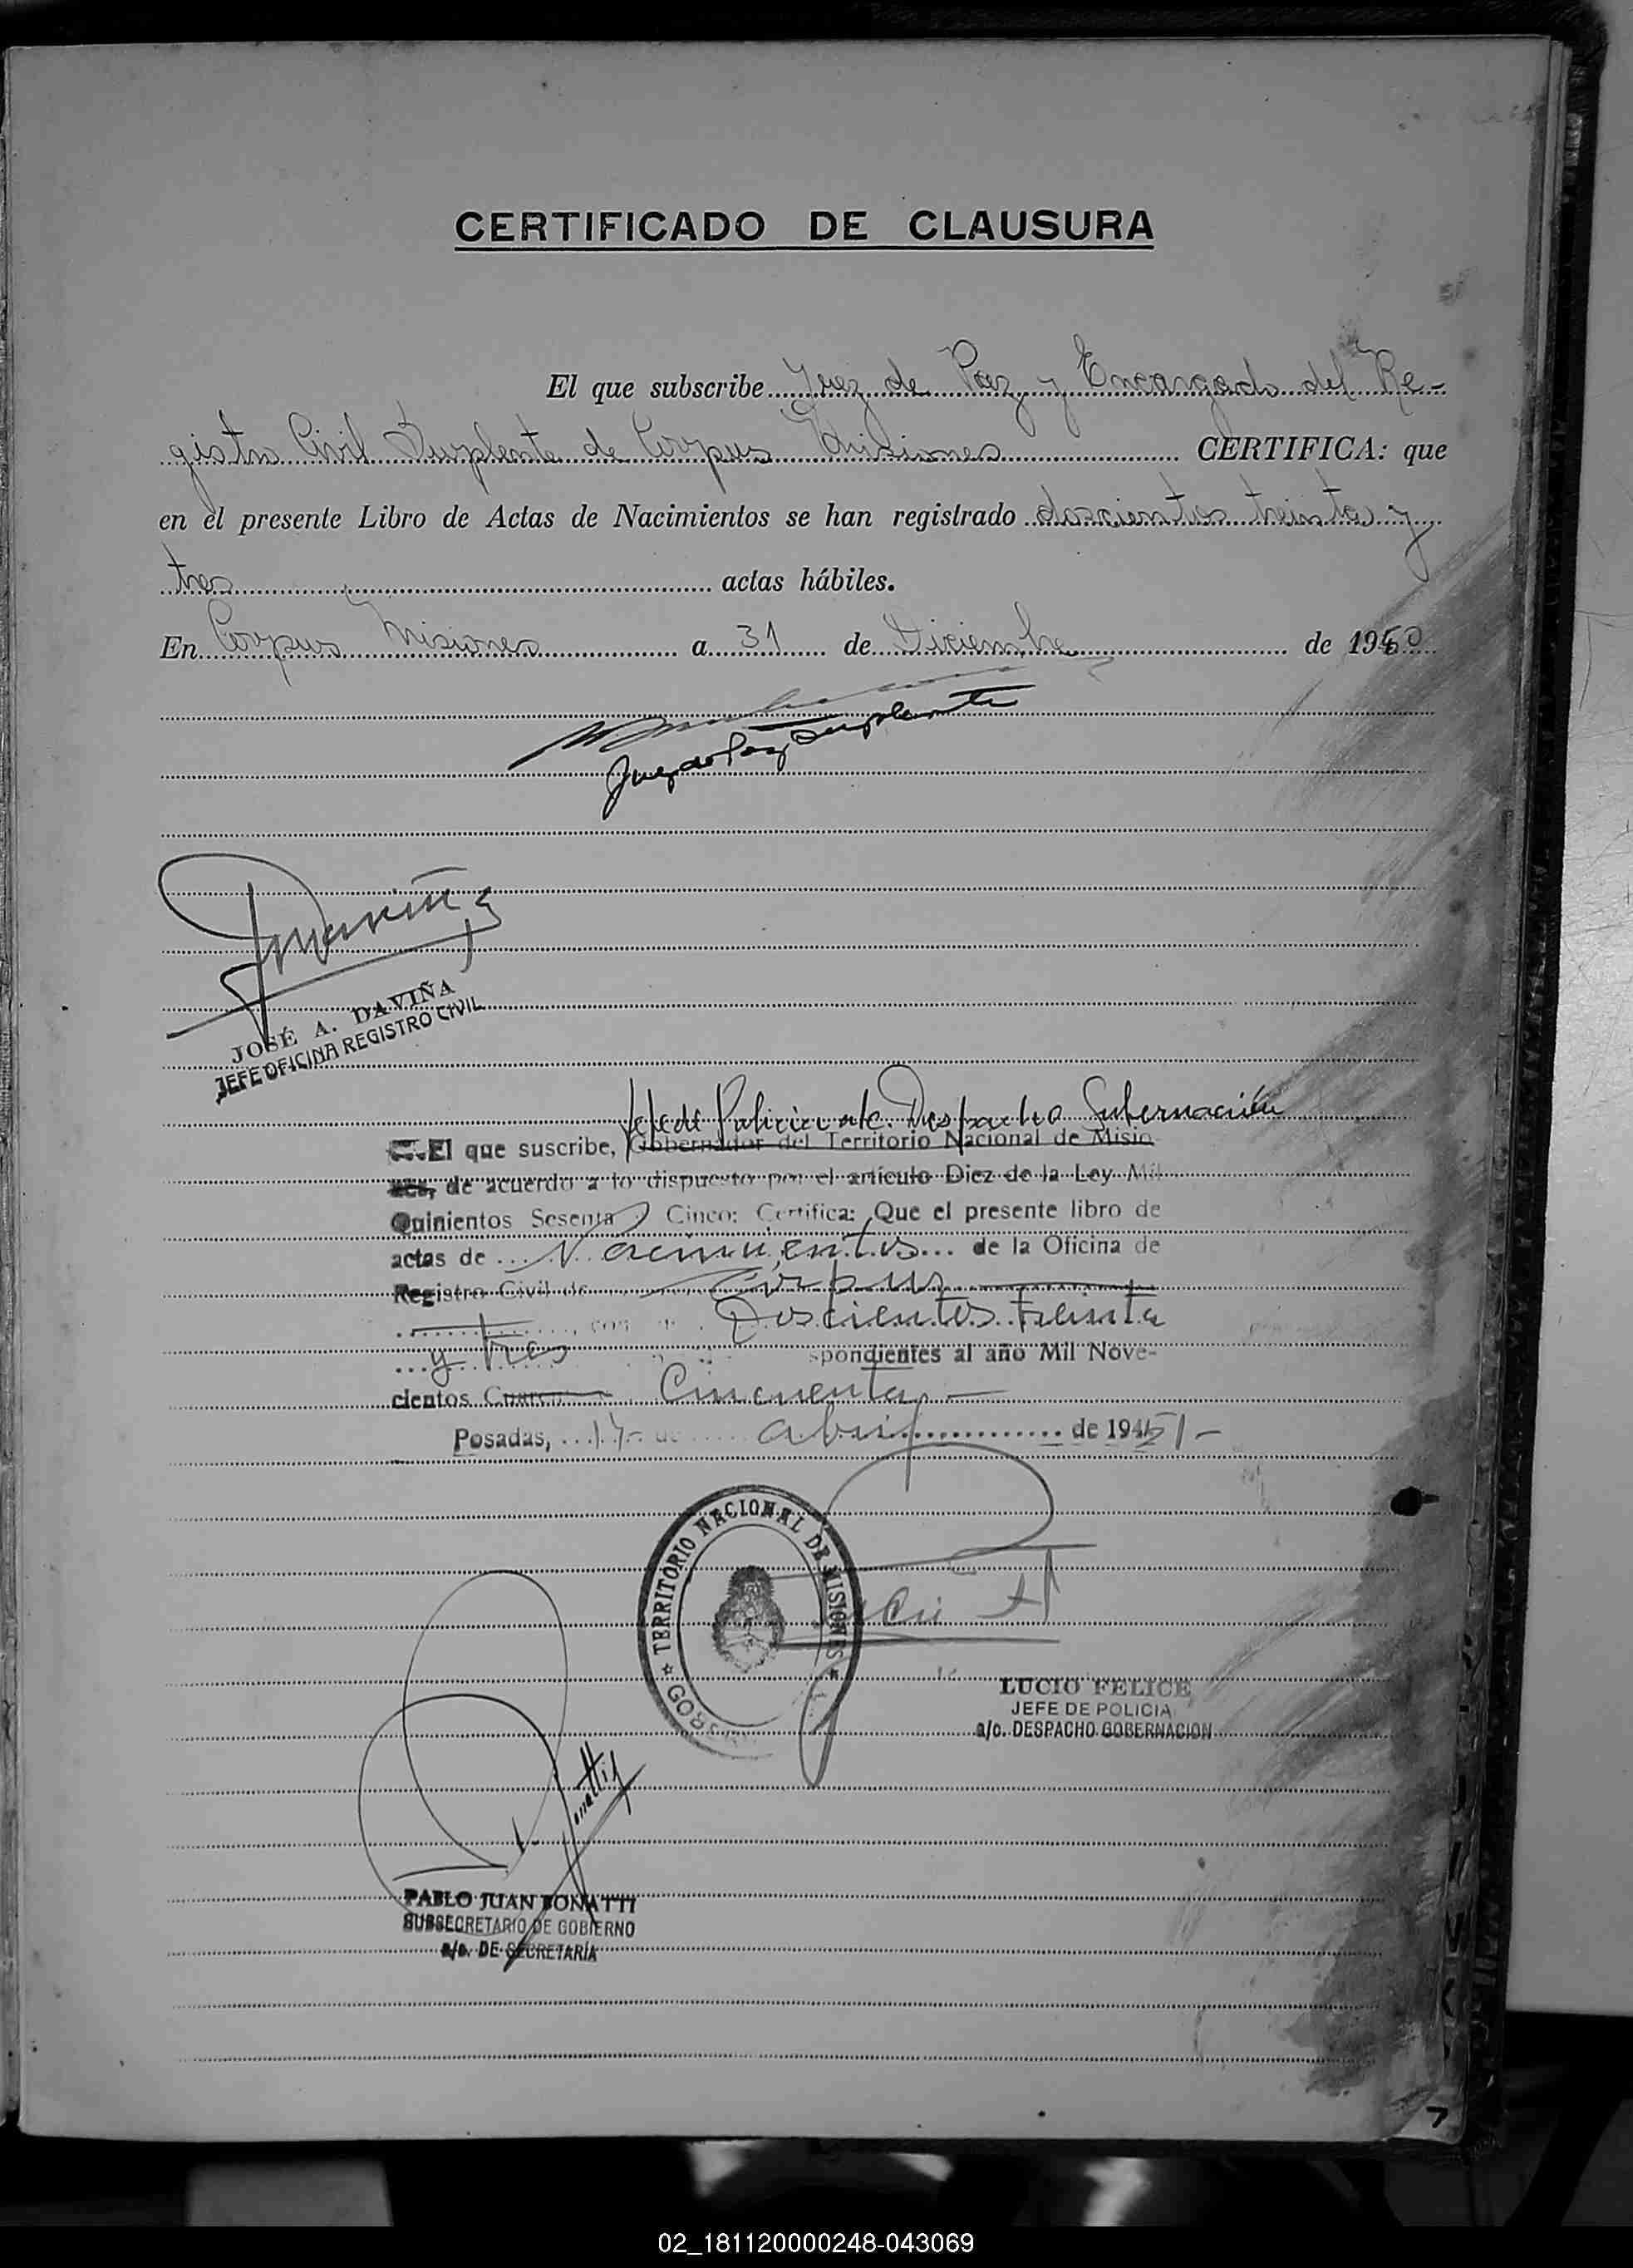 CERTIFICADO DE CLAUSURA
El que subscribe Juez de Paz y Encargado del Re-
gistro Civil Suplente de Corpus Misiones CERTIFICA: que
en el presente Libro de Actas de Nacimientos se han registrado doscientos treinta y
tres actas hábiles.
En Corpus Misiones a 31 de Diciembre de 1950
Juez de Paz Suplente
JOSÉ A. DAVIÑA
JEFE OFICINA REGISTRO CIVIL
Jefe de Policia a/c. Despacho Gobernación
El que suscribe, Gobernador del Territorio Nacional de Misio-
nes, de acuerdo a lo dispuesto por el artículo Diez de la Ley Mil
Quinientos Sesenta y Cinco: Certifica: Que el presente libro de
actas de Nacimientos de la Oficina de
Registro Civil de Corpus
con Doscientos treinta
y tres spondientes al año Mil Nove-
cientos Cincuenta
Posadas, 17 de abril de 1951
TERRITORIO NACIONAL DE MISIONES
LUCIO FELICE
JEFE DE POLICIA
a/c. DESPACHO GOBERNACION
PABLO JUAN BONATTI
SUBSECRETARIO DE GOBIERNO
a/c. DE SECRETARÍA
7
02_181120000248-043069